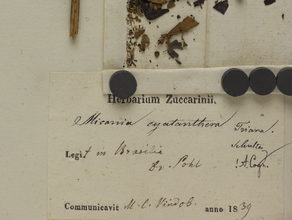 Herbarium Zuccarinii.
Miconia cyatanthera Triana.
Legit in Brasilia
Dr. Pohl !A.Cogn.
Communicavit M. C. Vindob. anno 1839